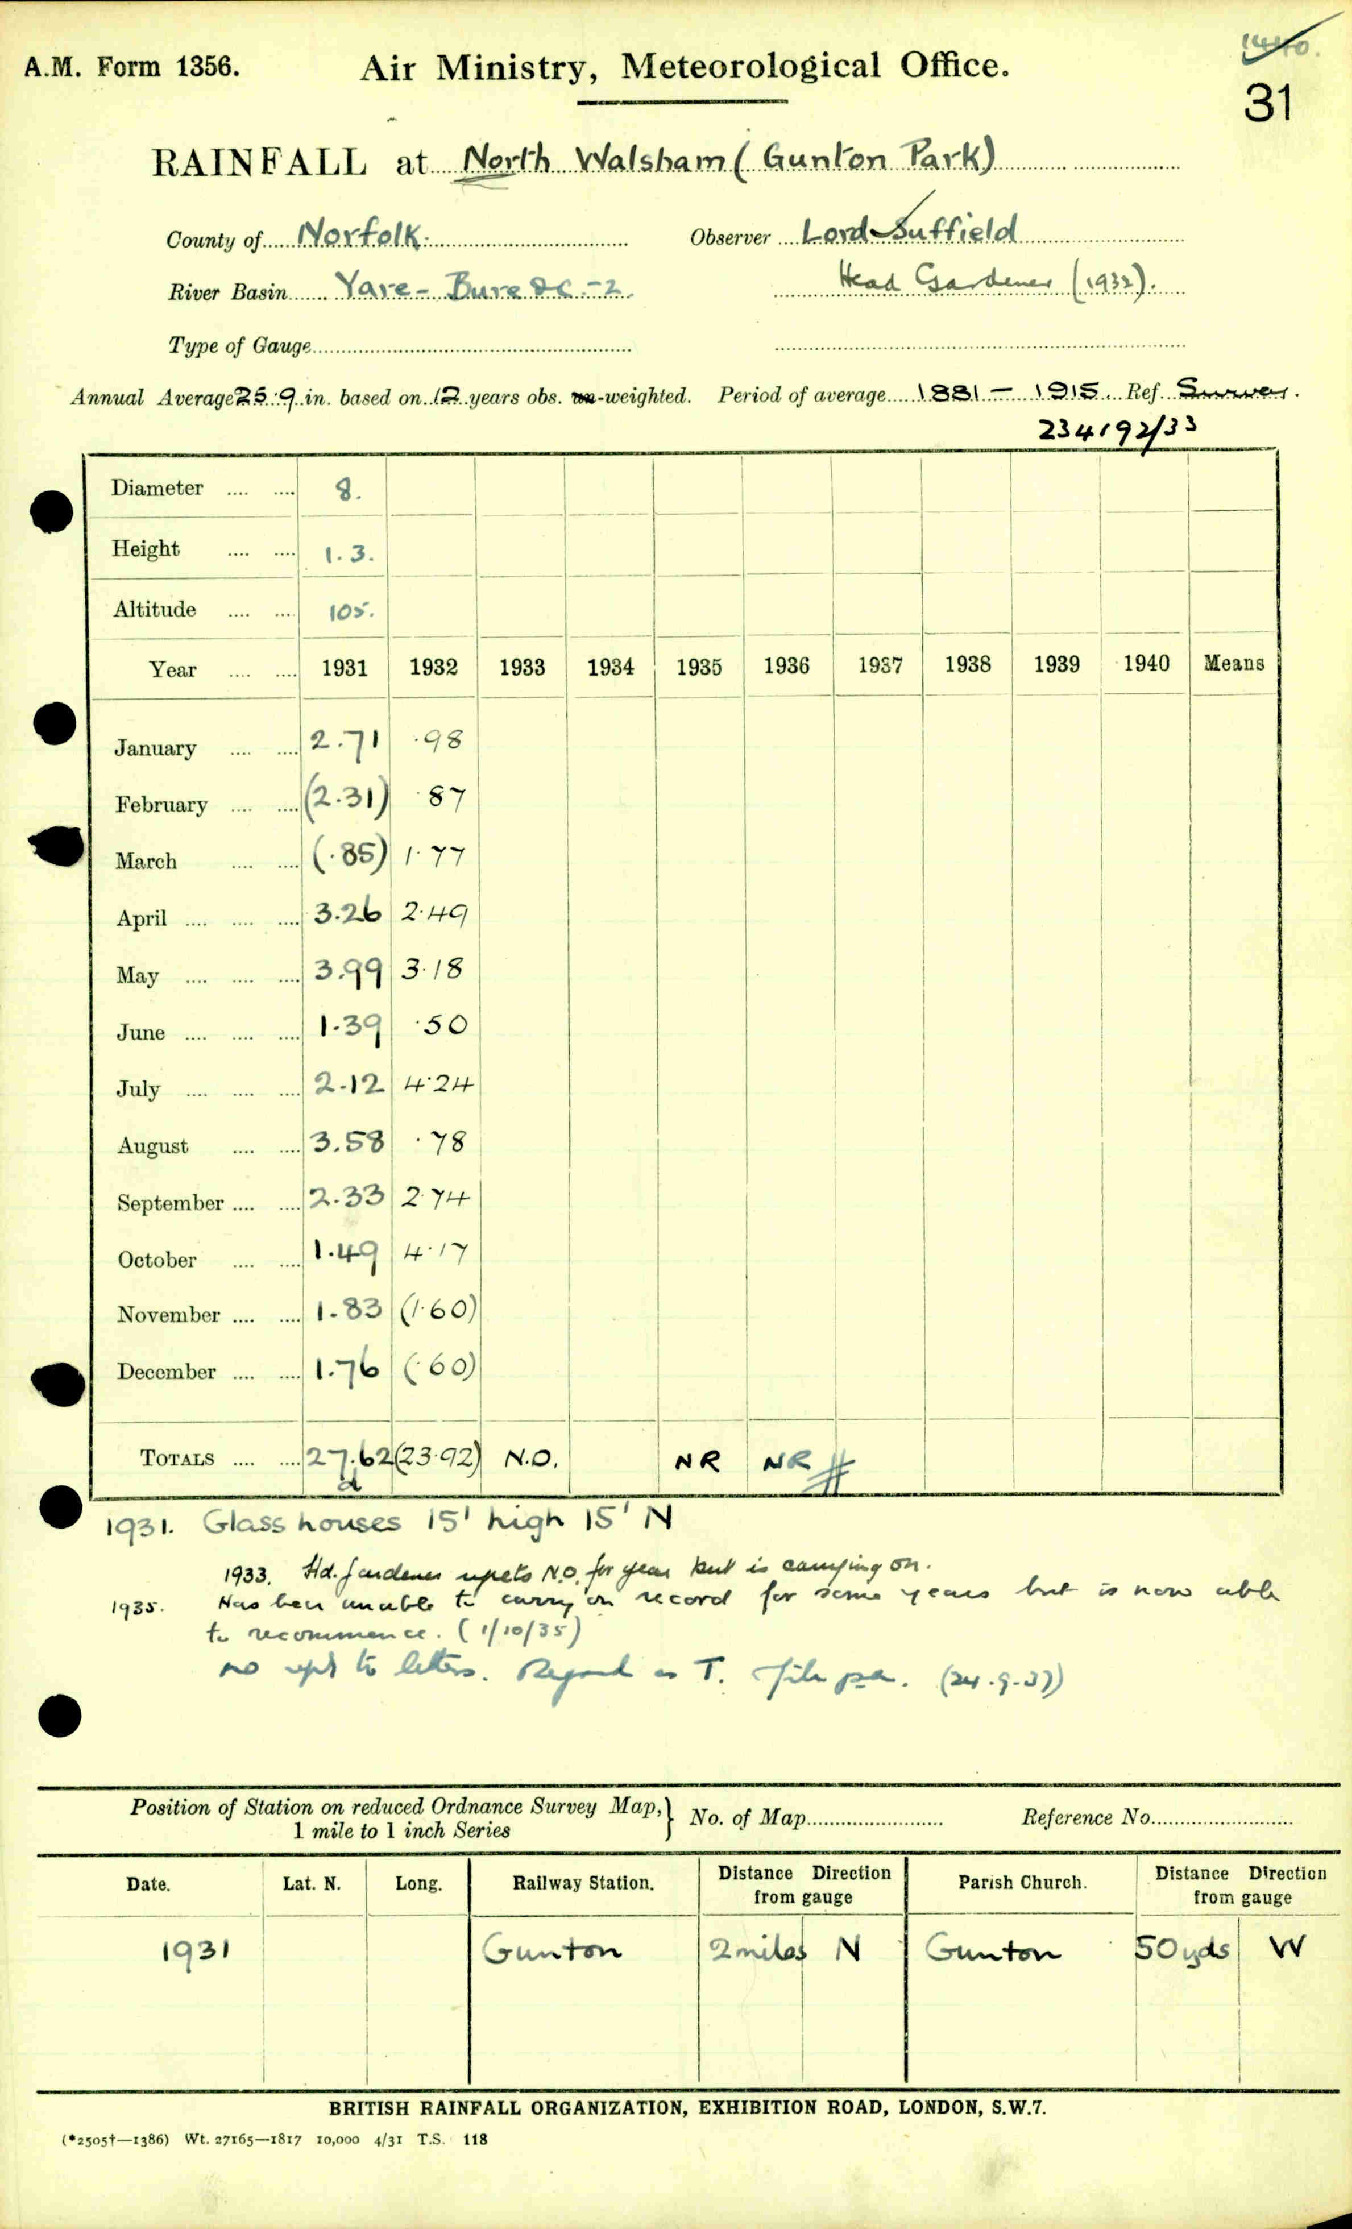 A.M. Form 1356.
Air Ministry, Meteorological Office.
1440.
31
RAINFALL at North Walsham (Gunton Park)
County of Norfolk. Observer Lord Suffield
River Basin Yare - Bure &c. - 2. Head Gardener (1932).
Type of Gauge
Annual Average 25.9 in. based on 12 years obs. un-weighted. Period of average 1881 - 1915. Ref. Survey.
234192/33
Diameter .... .... 8.
Height .... .... 1.3.
Altitude .... .... 105.
Year .... .... 1931 1932 1933 1934 1935 1936 1937 1938 1939 1940 Means
January .... .... 2.71 .98
February .... .... (2.31) .87
March .... .... (.85) 1.77
April .... .... .... 3.26 2.49
May .... .... .... 3.99 3.18
June .... .... .... 1.39 .50
July .... .... .... 2.12 4.24
August .... .... 3.58 .78
September .... .... 2.33 2.74
October .... .... 1.49 4.17
November .... .... 1.83 (1.60)
December .... .... 1.76 (.60)
TOTALS .... .... 27.62 (23.92) N.O. NR NR #
d
1931. Glass houses 15' high 15' N
1933. Hd. Gardener repets N.O. for year but is carrying on.
1935. Has been unable to carry on record for some years but is now able
to recommence. (1/10/35)
no reply to letters. Regard as T. File pa. (24.9.37)
Position of Station on reduced Ordnance Survey Map, } No. of Map Reference No.
1 mile to 1 inch Series
Date. Lat. N. Long. Railway Station. Distance Direction from gauge Parish Church. Distance Direction from gauge
1931 Gunton 2 miles N Gunton 50 yds W
BRITISH RAINFALL ORGANIZATION, EXHIBITION ROAD, LONDON, S.W.7.
(*2505†—1386) Wt. 27165—1817 10,000 4/31 T.S. 118